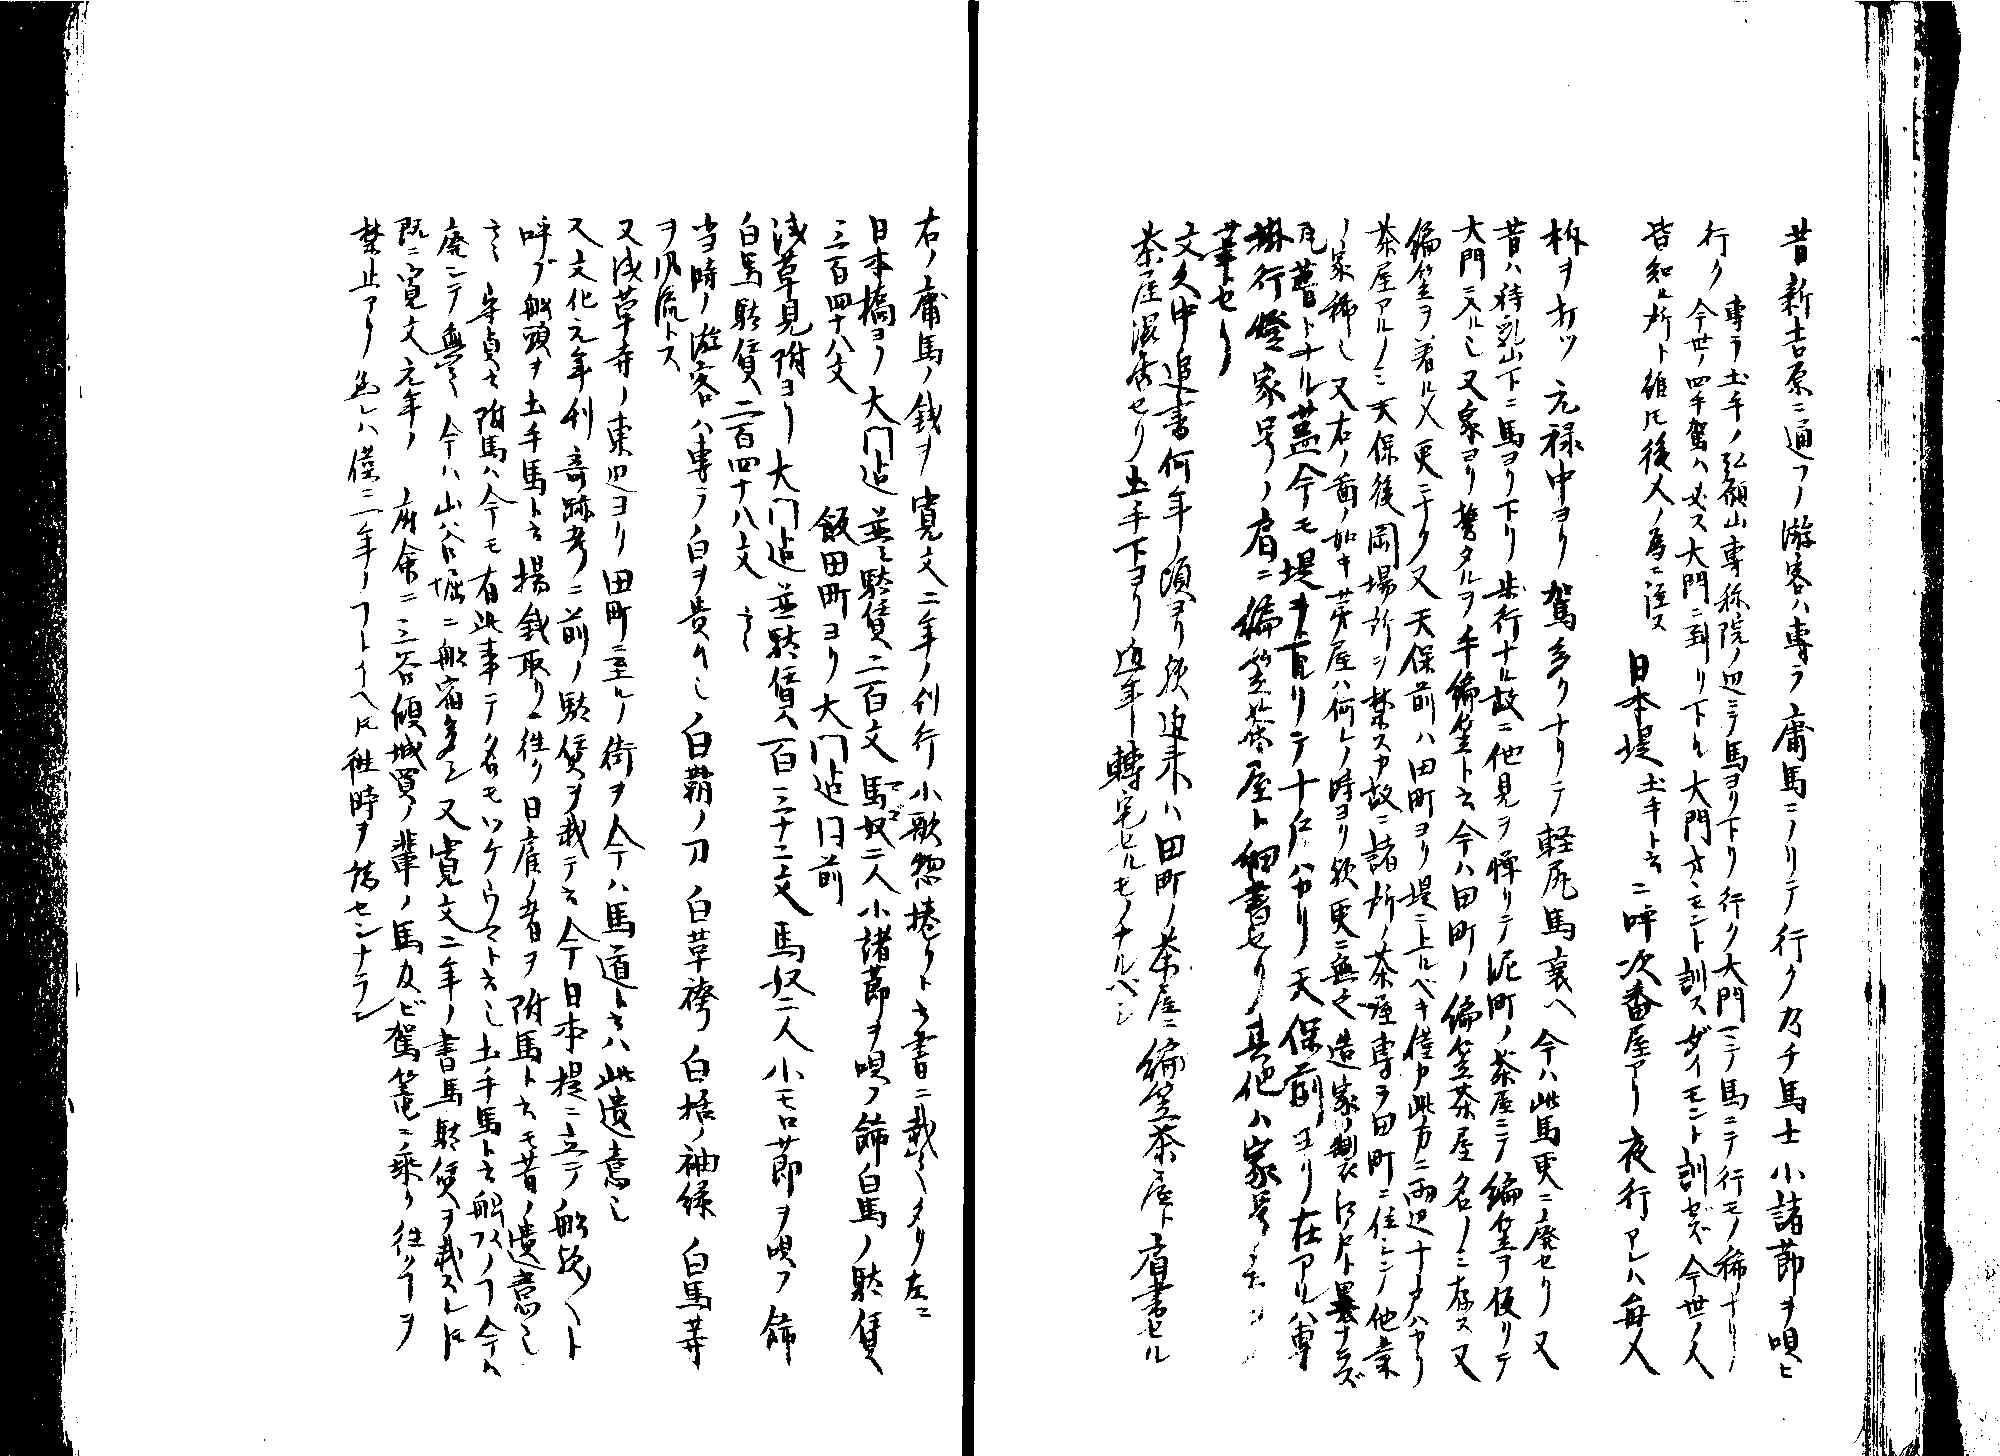 昔新吉原ニ通フノ游客ハ専ラ庸馬ニノリテ行ク乃チ馬士小諸節ヲ唄ヒ
行ク 専ラ土手ノ弘願山専称院ノ辺ニテ馬ヨリ下リ行ク大門マデ馬ニテ行モノ稀ナリ
今世ノ四手駕ハ必ス大門ニ到リ下ル大門オヽモント訓スダイモント訓セズ今世ノ人
皆知ル所ト雖トモ後人ノ為ニ注ス 日本堤 土手ト云 ニ呼次番屋アリ夜行アレハ毎人
柝ヲ打ツ 元禄中ヨリ駕多クナリテ軽尻馬衰ヘ今ハ此馬更ニ廃セリ又
昔ハ待乳山下ニ馬ヨリ下リ歩行ナル故ニ他見ヲ憚リテ泥町ノ茶屋ニテ編笠ヲ仮リテ
大門ニ入ルシ又家ヨリ携タルヲ手編笠ト云今ハ田町ノ編笠茶屋名ノミ存ス又
編笠ヲ着ル人更ニナク又天保前ハ田町ヨリ堤ニ上ルベキ僅カ此方ニ両辺十戸ハカリ
茶屋アルノミ天保後岡場所ヲ禁ス故ニ諸所ノ茶屋専ヲ田町ニ住シテ他業
ノ家稀シ又右ノ図ノ如キ芽屋ハ何レノ時ヨリ歟更ニ無之造家ノ製江戸ト異ナラズ
瓦葺トナル蓋今モ堤ヲ下リテ十戸ハカリ天保前ヨリ在アルハ専
掛行燈家号ノ肩ニ編笠茶屋ト細書セリ其他ハ家号
筆セリ
文久中追書何年ノ頃ヨリ歟近来ハ田町ノ茶屋ニ編笠茶屋ト肩書セル
茶屋混在セリ土手下ヨリ近年転宅セルモノナルベシ
右ノ庸馬ノ銭ヲ寛文二年ノ刊行小歌惣捲リト云書ニ載之タリ左ニ
日本橋ヨリ大門迄 並ニ駄賃二百文 馬奴二人小諸節ヲ唄フ飾白馬ノ駄賃
三百四十八文 飯田町ヨリ大門迄同前
浅草見附ヨリ大門迄並駄賃百三十二文馬奴二人小モロ節ヲ唄フ飾
白馬駄賃二百四十八文 云々
当時ノ游客ハ専ラノ白ヲ貴ヘシ白鞘ノ刀 白革袴 白裾ノ袖縁 白馬等
ヲ風流トス
又浅草寺ノ東辺ヨリ田町ニ至ルノ街ヲ今ハ馬道ト云ハ此遺意シ
又文化元年刊奇跡考ニ前ノ駄賃ヲ載テ云今日本堤ニ立テ船歟々々ト
呼ブ船頭ヲ土手馬ト云揚銭取ニ往ク日雇ノ者ヲ附馬ト云モ昔ノ遺意シ
云々 守貞云附馬ハ今モ有此事テ名モツケウマト云シ土手馬ト云船フノフ今ハ
廃シテ無之今ハ山谷堀ニ船宿多シ又寛文二年ノ書馬駄賃ヲ載スレトモ
既ニ寛文元年ノ 府命ニ三谷傾城買ノ輩ノ馬及ビ駕篭ニ乗リ往クフヲ
禁止アリ 然レハ僅ニ二年ノフトイヘトモ往時ヲ誌センナラン